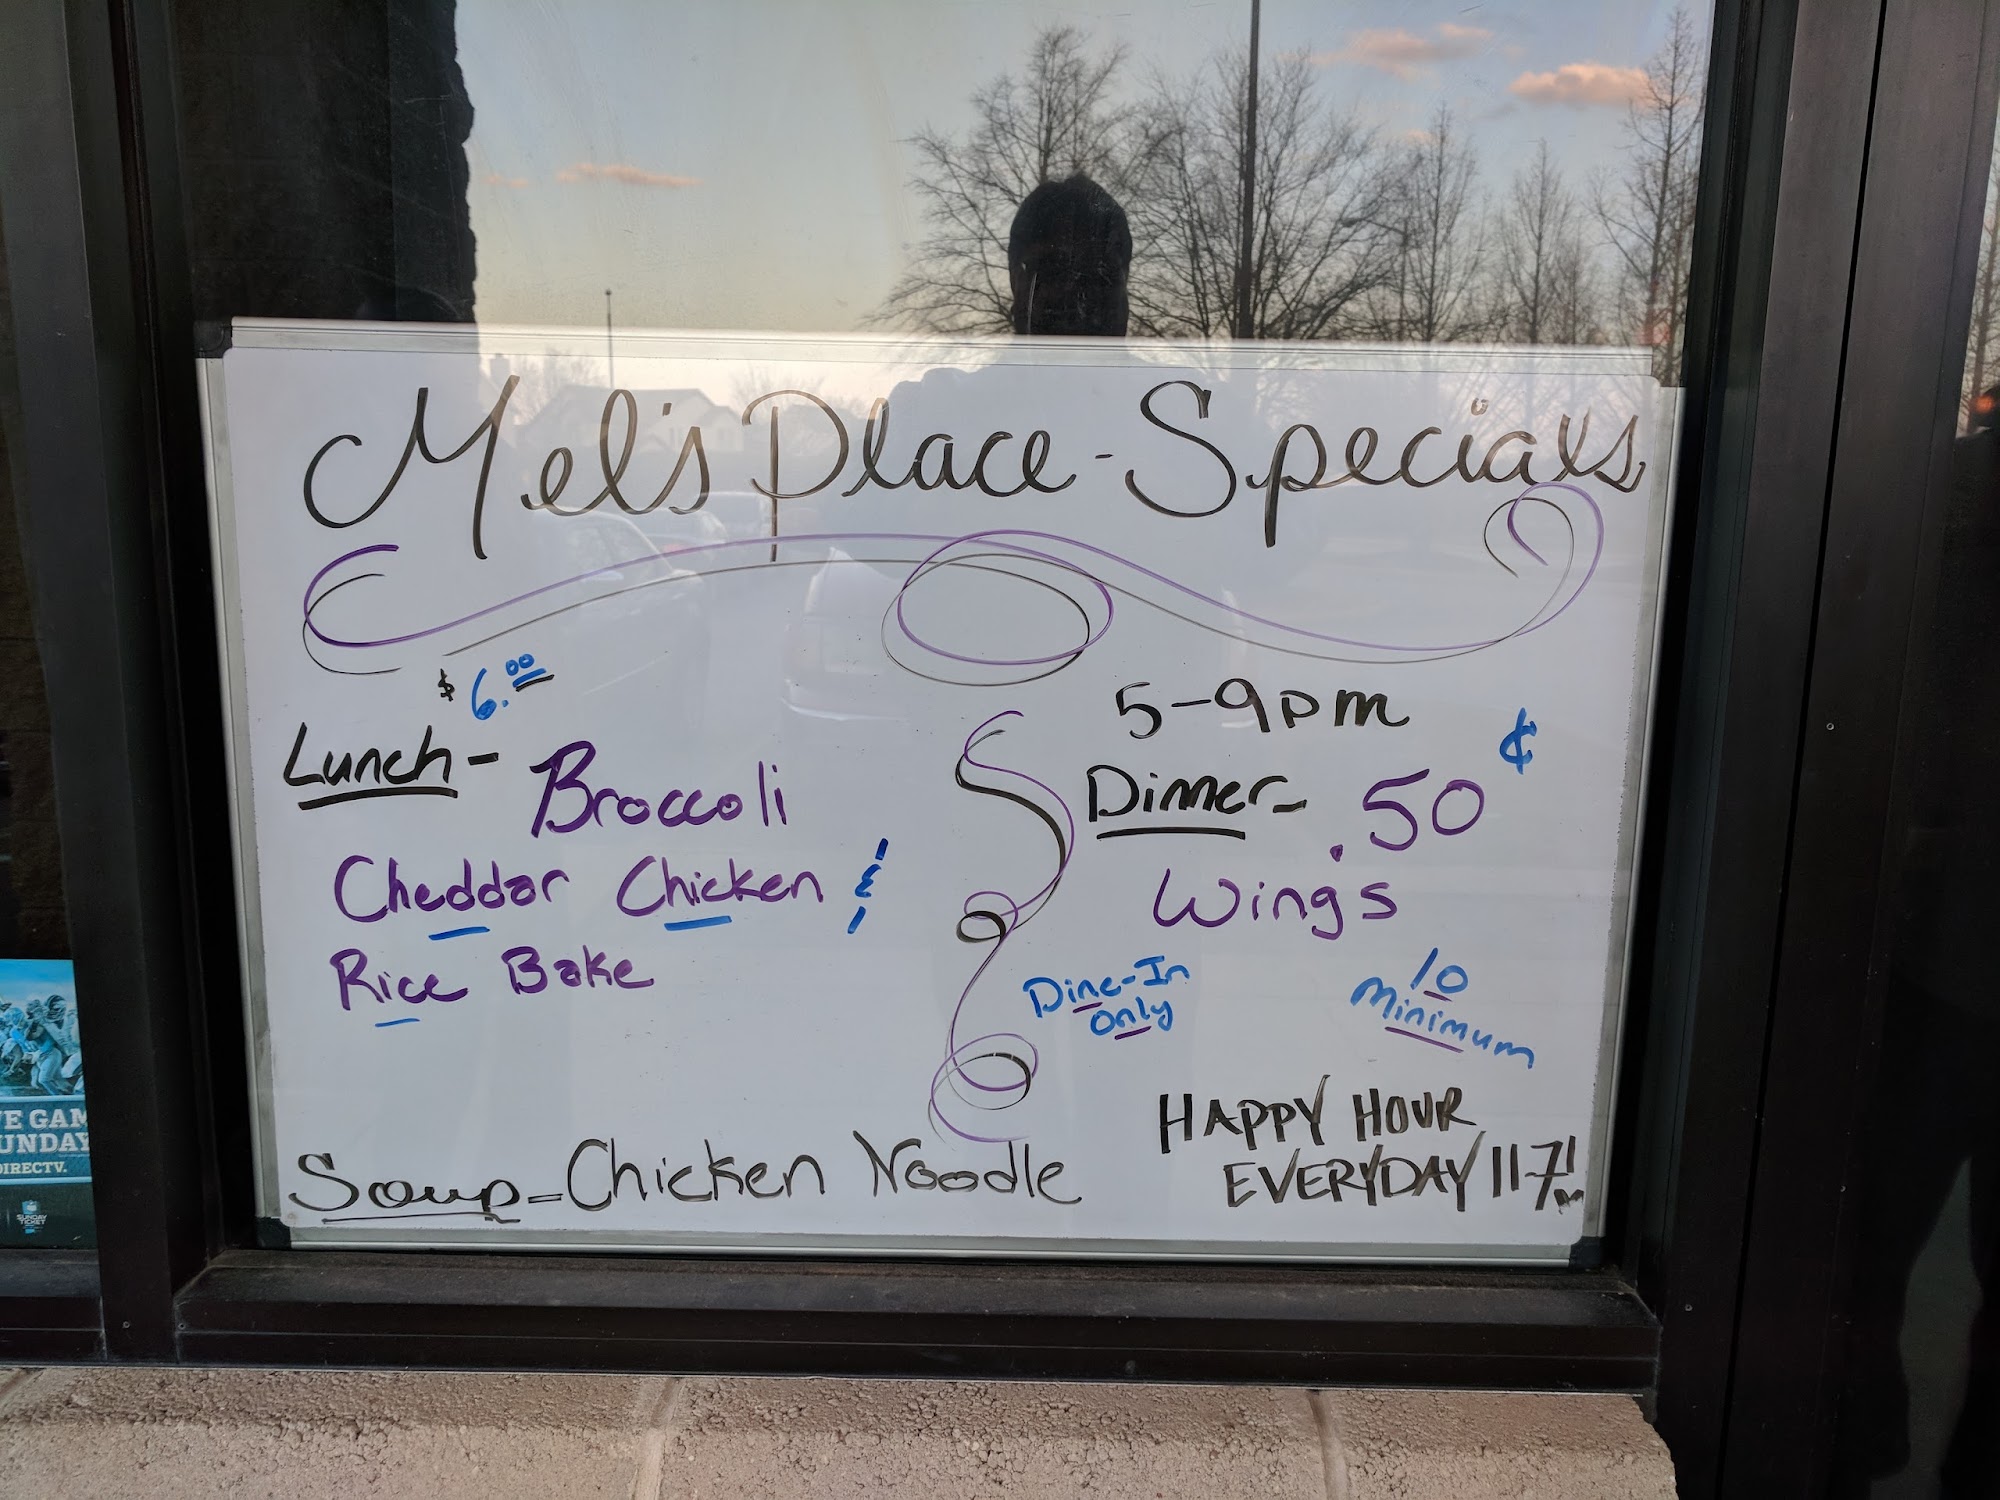 Mel's Place - Specials
$6.00
Lunch - Broccoli
Cheddar Chicken &
Rice Bake
5-9pm
Dinner - .50 ¢
Wings
Dine-In
Only
10
Minimum
HAPPY HOUR
EVERYDAY 11-7
Soup - Chicken Noodle
E GAM
UNDAY
DIRECTV.
SUNDAY
TICKET